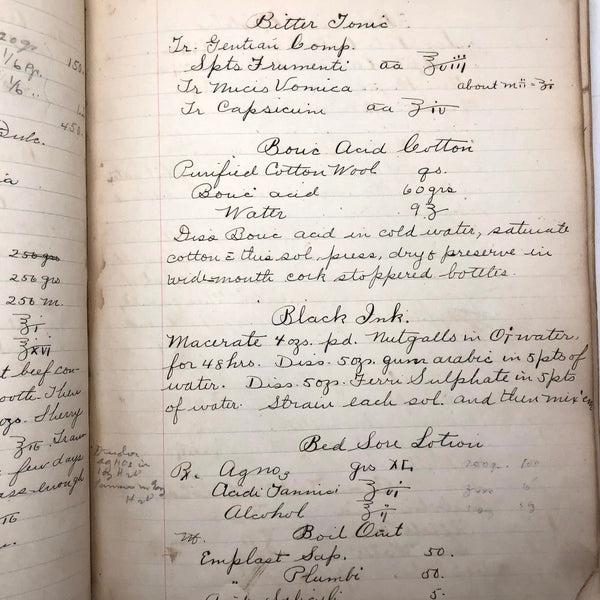 20 gr.
1/6 gr. 150.
1/6 ..
450.
Dulc.
ia
250 grs
250 grs
250 m.
ʒi
ʒxvi
t beef con-
ooth. Then
ozs. Sherry
few days
ass enough
Bitter Tonic
Tr. Gentian Comp.
Spts Frumenti aa ʒviii
Tr Nucis Vomica about mii = ʒi
Tr Capsicum aa ʒiv
Boric Acid Cotton
Purified Cotton Wool qs.
Boric acid 60 grs
Water 9 ʒ
Diss Boric acid in cold water, saturate
cotton c̄ this sol. press, dry & preserve in
wide-mouth cork stoppered bottles.
Black Ink.
Macerate 4 ozs. pd. Nutgalls in Oi water,
for 48 hrs. Diss. 5 ozs. gum arabic in 5 pts of
water. Diss. 5 ozs. Ferri Sulphate in 5 pts
of water. Strain each sol. and then mix 'em
Bed Sore Lotion
℞. Agno3 grs XL
Acidi Tannici ʒvi
Alcohol ʒii
M. Boil Out
Emplast Sap. 50.
" Plumbi 50.
5.